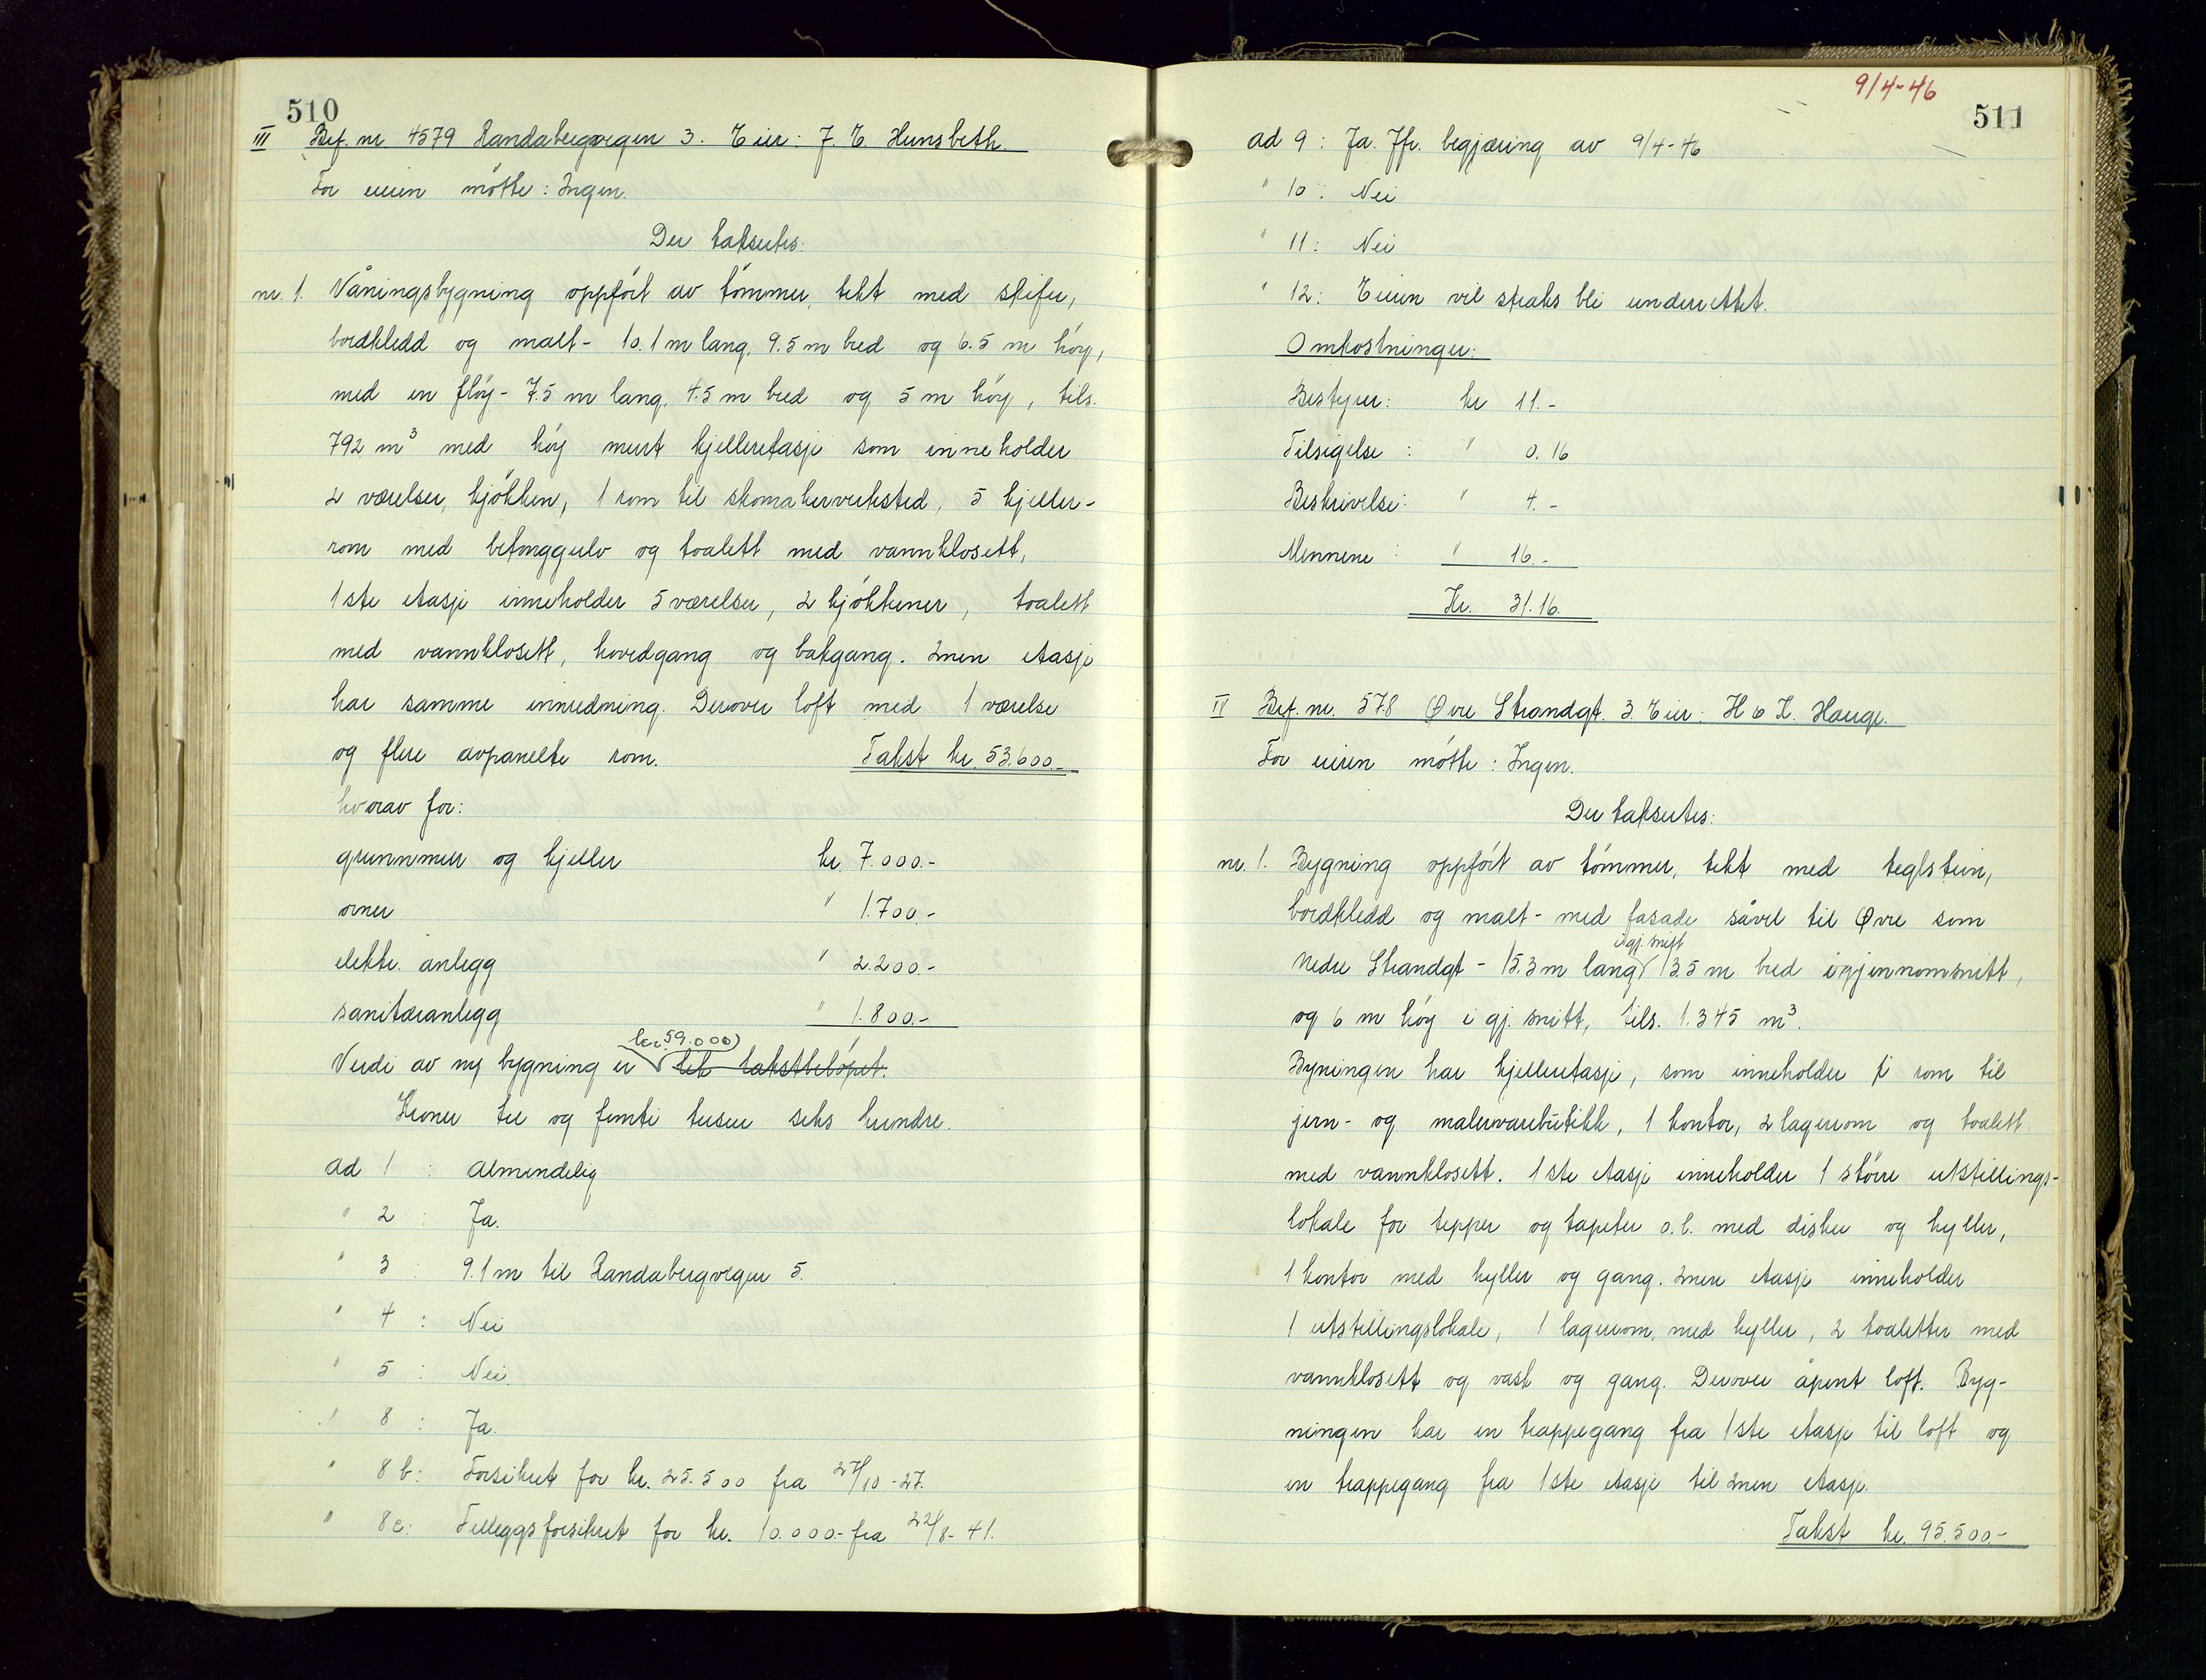 510
III Bef. nr 4579 Randabergvegen 3. Eier: J. E. Hunsbeth
For eieren møtte: Ingen.
Der takseres:
nr. 1. Våningsbygning oppført av tömmer, tekt med skifer,
bordkledd og malt - 10.1 m lang, 9.5 m bred og 6.5 m høy,
med en fløy - 7.5 m lang, 4.5 m bred og 5 m høy, tils.
792 m³ med høy murt kjelleretasje som inneholder
2 værelser, kjøkken, 1 rom til skomakerverksted, 5 kjeller-
rom med betonggulv og toalett med vannklosett,
1ste etasje inneholder 5 værelser, 2 kjøkkener, toalett
med vannklosett, hovedgang og bakgang. 2nen etasje
har samme innredning. Derover loft med 1 værelse
og flere avpanelte rom. Takst kr. 53.600.-
hvorav for:
grunnmur og kjeller kr. 7.000.-
ovner " 1.700.-
elektr. anlegg " 2.200.-
sanitæranlegg " 1.800.-
kr. 59.000)
Verdi av ny bygning er lik takstbeløpet.
Kroner tre og femti tusen seks hundre.
ad 1 : Almindelig
" 2 : Ja.
" 3 : 9.1 m til Randabergvegen 5.
" 4 : Nei
" 5 : Nei.
" 8 : Ja.
" 8 b: Forsikret for kr. 25.500 fra 27/10-27.
" 8c: Tilleggsforsikret for kr. 10.000.- fra 22/8-41.
9/4-46
511
ad 9 : Ja. Jfr. begjæring av 9/4-46
" 10 : Nei
" 11 : Nei
" 12 : Eieren vil straks bli underrettet.
Omkostninger:
Bestyrer: kr 11.-
Tilsigelse : " 0.16
Beskrivelse: " 4.-
Mennene : " 16.-
Kr. 31.16.
IV Bef. nr. 578 Øvre Strandgt. 3. Eier: H & K. Hauge.
For eieren møtte: Ingen.
Der takseres:
nr. 1. Bygning oppført av tömmer, tekt med teglstein,
bordkledd og malt - med fasade såvel til Øvre som
i gj. snitt
Nedre Strandgt - 15.3 m lang, 13.5 m bred i gjennomsnitt,
og 6 m høy i gj. snitt, tils. 1.345 m³.
Byningen har kjelleretasje, som inneholder 1 rom til
jern- og malervarebutikk, 1 kontor, 2 lagerrom og toalett
med vannklosett. 1ste etasje inneholder 1 større utstillings-
lokale for tepper og tapeter o.l. med disker og hyller,
1 kontor med hyller og gang. 2nen etasje inneholder
1 utstillingslokale, 1 lagerrom, med hyller, 2 toaletter med
vannklosett og vask og gang. Derover åpent loft. Byg-
ningen har en trappegang fra 1ste etasje til loft og
en trappegang fra 1ste etasje til 2nen etasje.
Takst kr. 95.500.-